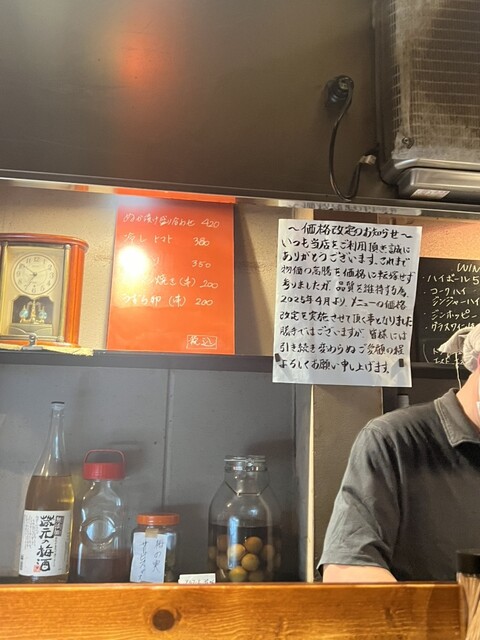 ぬか漬け盛り合わせ 420
冷しトマト 380
350
焼き(本) 200
うずら卵(本) 200
税込
～価格改定のお知らせ～
いつも当店をご利用頂き誠に
ありがとうございます。これまで
物価の高騰を価格に転嫁せず
参りましたが、品質を維持する為、
2025年4月より、メニューの価格
改定を実施させて頂く事となりました
勝手ではございますが、皆様には
引き続き変わらぬご愛顧の程
よろしくお願い申し上げます。
WIN
・ハイボール 5
・コークハイ
・ジンジャーハイ
・ジンホッピー
・グラスワイン
蔵元の梅酒